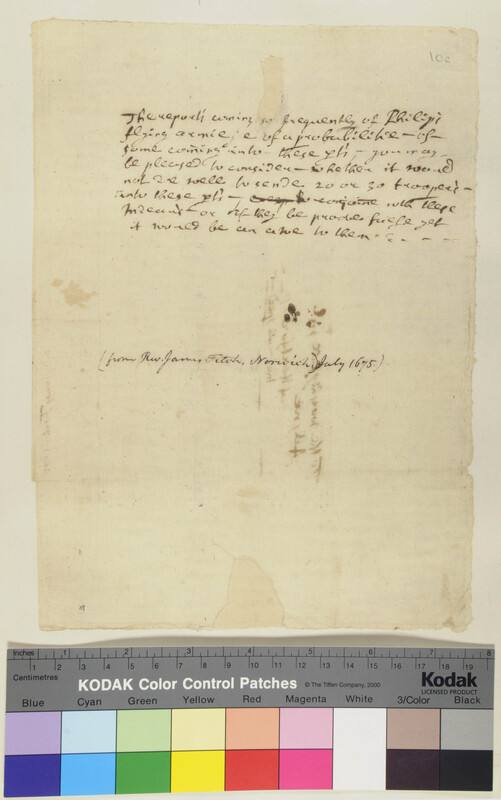 10c
The reports coming so frequently of Philips
flying armie, & of a probabilitie of
some coming into these pts, you may
be pleased to consider whether it would
not be well to sende 20 or 30 troopers
into these pts, to conjoine with these
indeans or if they be proved false yet
it would be an awe to them
(from Rev. James Fitch, Norwich, July 1675.)
Inches 1 2 3 4 5 6 7 8
Centimetres 1 2 3 4 5 6 7 8 9 10 11 12 13 14 15 16 17 18 19
KODAK Color Control Patches © The Tiffen Company, 2000 Kodak
LICENSED PRODUCT
Blue Cyan Green Yellow Red Magenta White 3/Color Black